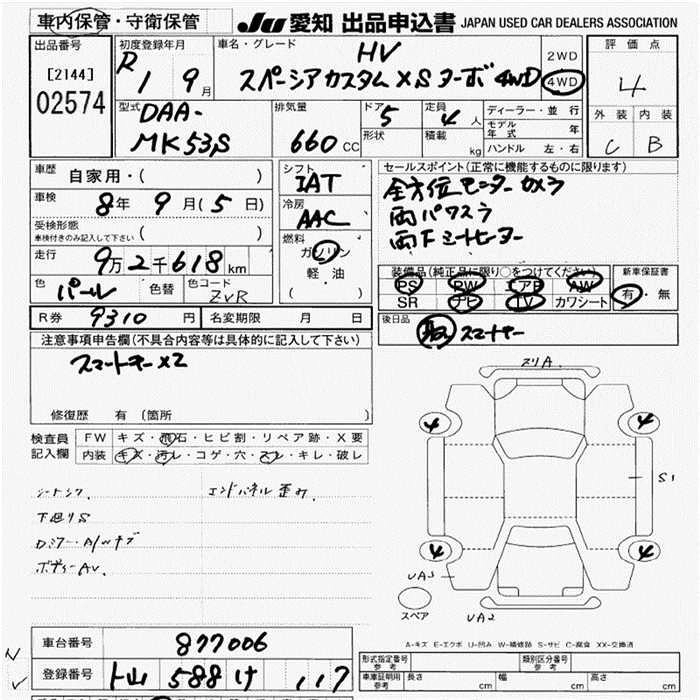 車内保管・守衛保管
JU 愛知 出品申込書 JAPAN USED CAR DEALERS ASSOCIATION
出品番号
[2144]
02574
初度登録年月
R 1 9月
車名・グレード
HV
スペーシアカスタムXSターボ4WD
2WD
4WD
評価点
4
外装 内装
C B
型式
DAA-
MK53S
排気量
660 CC
ドア 5
形状
定員 4 人
積載 kg
ディーラー・並行
モデル年式 年
ハンドル 左・右
車歴
自家用・( )
車検
8年 9月(5日)
受検形態
車検付きのみ記入して下さい ( )
走行
9万2千618km
色 パール 色替 色コード ZVR
シフト
IAT
冷房
AAC
燃料
ガソリン
軽・油
( )
セールスポイント(正常に機能するものに限ります)
全方位モニターカメラ
両パワスラ
両Fシートヒーター
装備品(純正品に限り○をつけてください)
PS PW エアB AW
SR ナビ TV カワシート
新車保証書
有・無
R券 9310 円 名変期限 月 日
後日品
取 スマートキー
注意事項申告欄(不具合内容等は具体的に記入して下さい)
スマートキーx2
修復歴 有(箇所 )
検査員
記入欄
FW キズ・飛石・ヒビ割・リペア跡・X要
内装 キズ・汚レ・コゲ・穴・スレ・キレ・破レ
エンドパネル歪み.
下廻りS
ボディーAV.
スリA.
4 4
S1
4 4
UA3
UA2
スペア
A-キズ E-エクボ U-凹み W-補修跡 S-サビ C-腐食 XX-交換済
車台番号 877006
登録番号 588 け 117
形式指定番号
参考
類別区分番号
参考
車庫証明用
参考
長さ cm 幅 cm 高さ cm